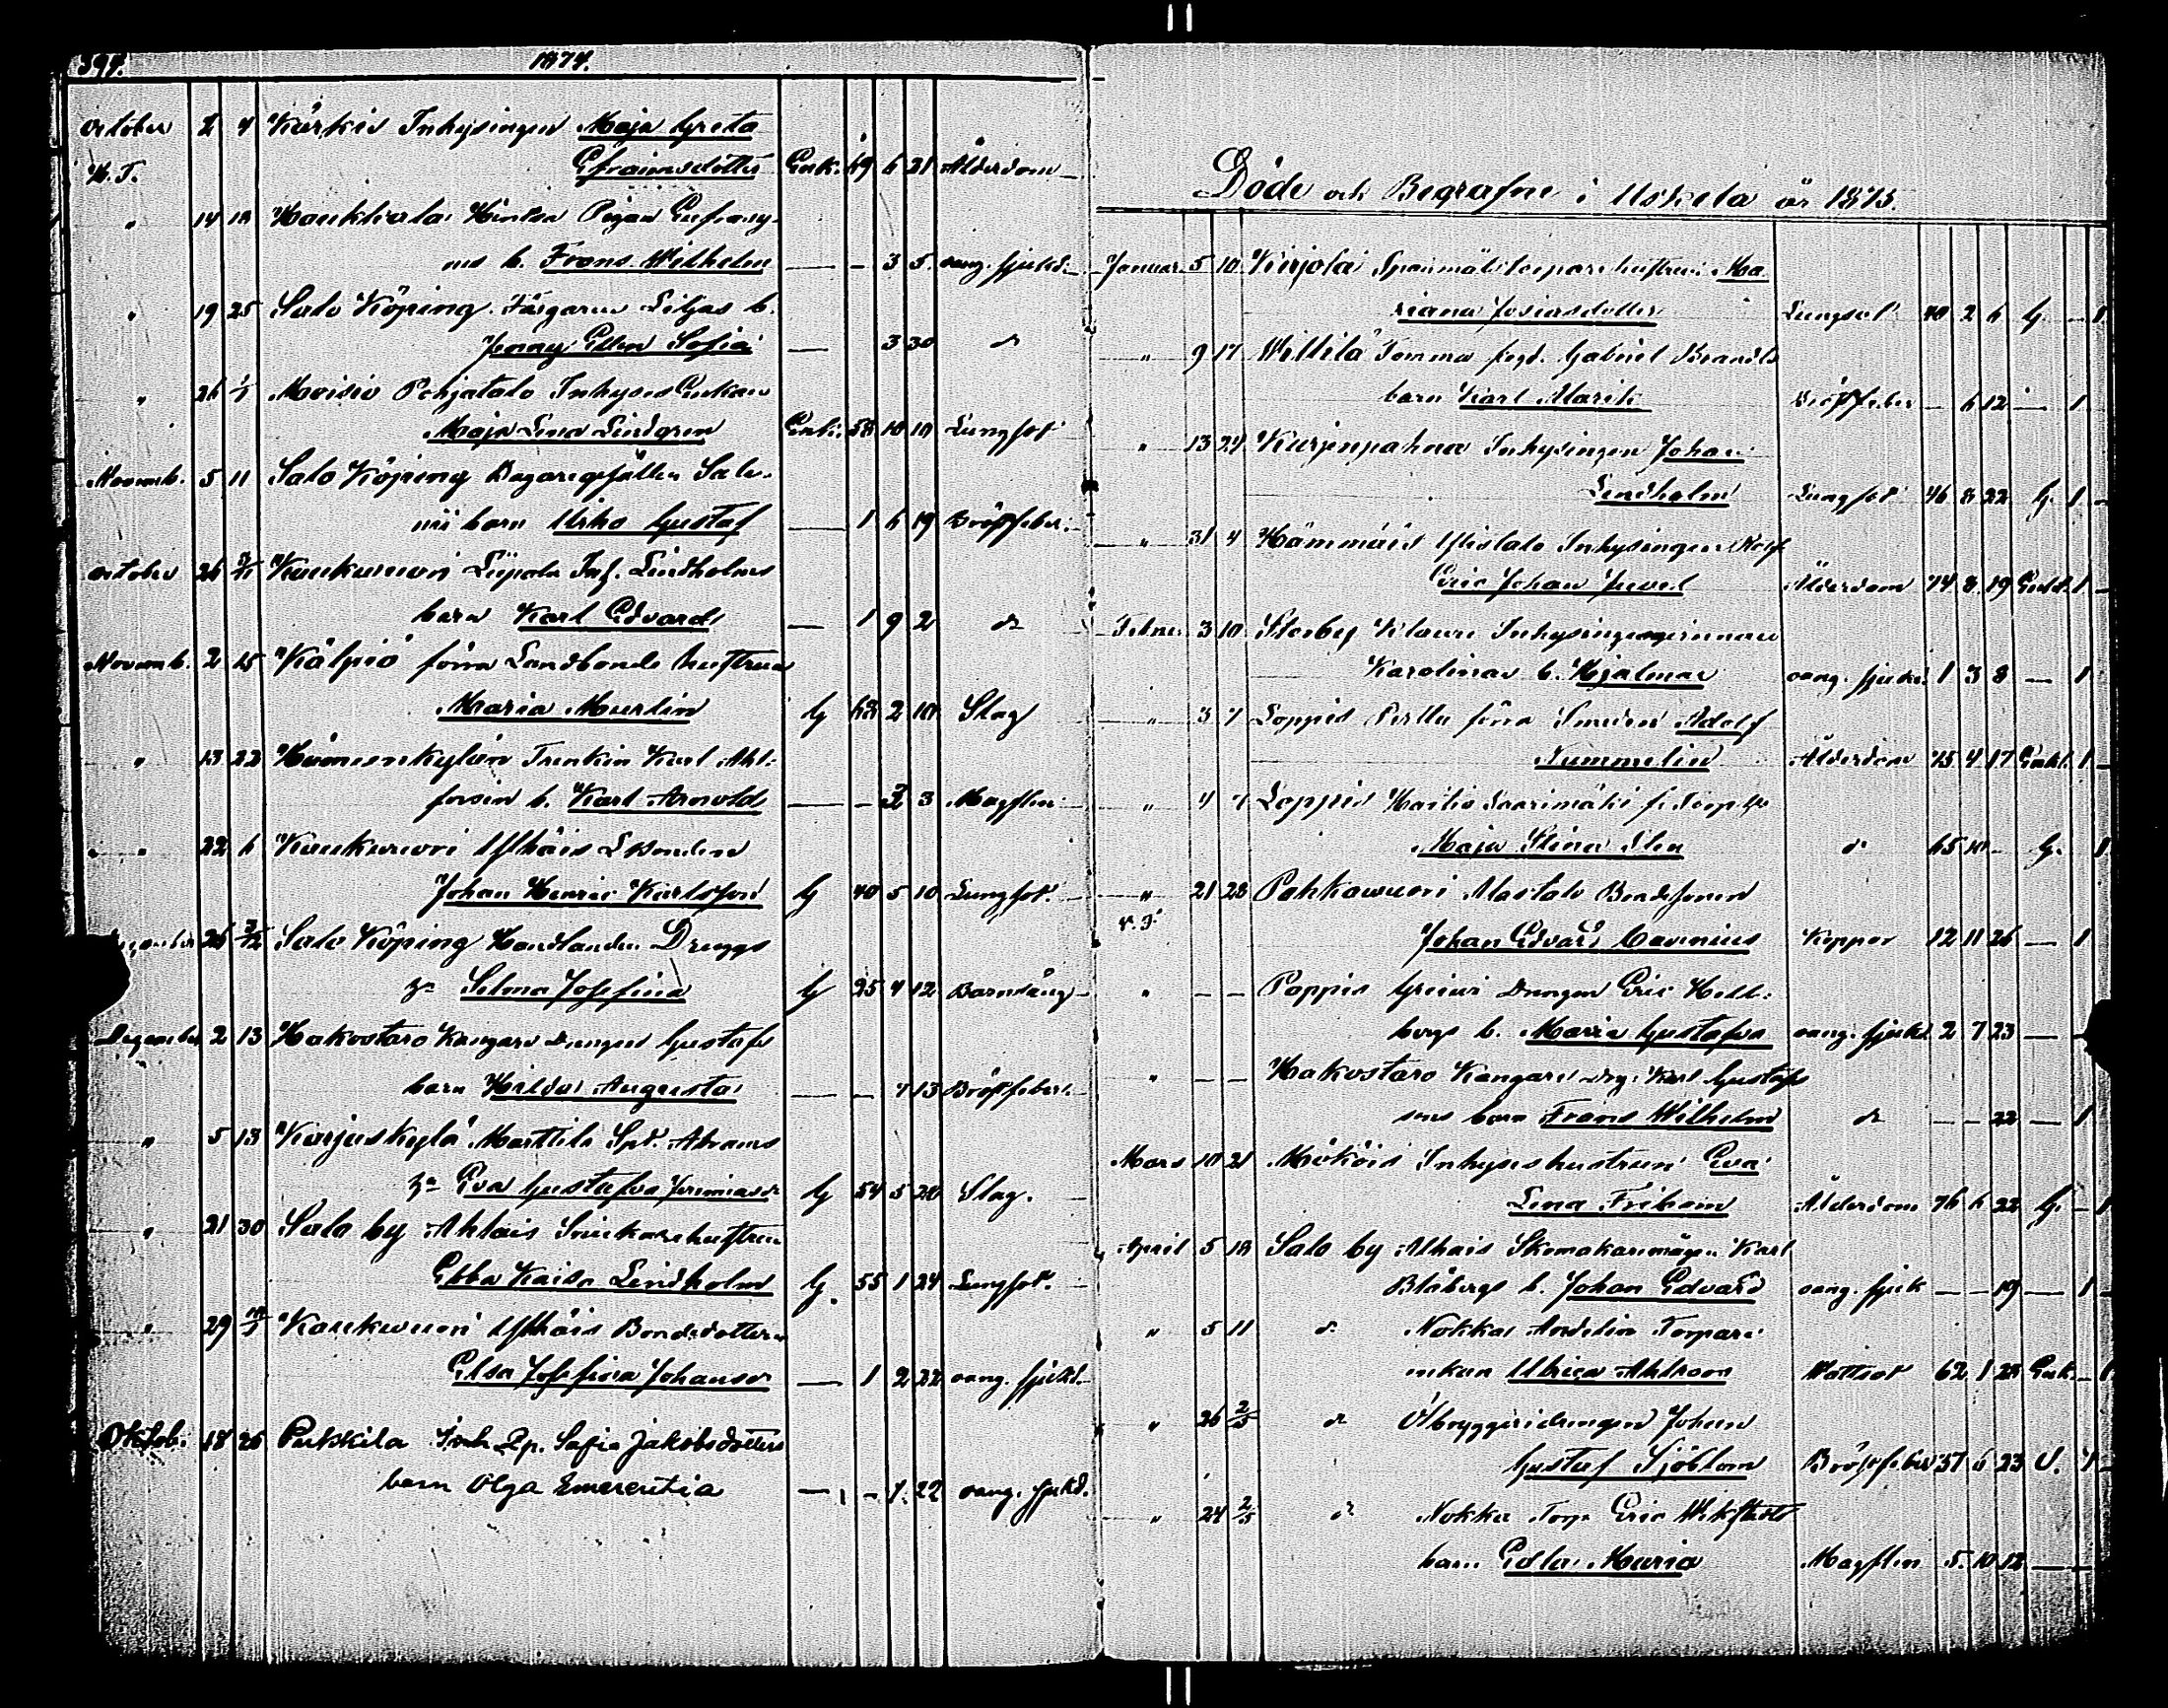 1874.
October 2 4 Kärkis Inhysingen Maja Greta
N. T. Efraimsdotter Enk. 69 6 21 Ålderdom
" 14 18 Haukkala Pigan
ms b. Frans Wilhelm — - 3 5. oang. sjukd.
" 19 25 Salo Köping Färgaren Liljas b.
Jenny Ellen Sofia — 3 30 d:o
" 26 1/ Moisio Pohjatalo Inhyses Enkan
Maja Lena Lindgren Enk. 58 10 10 Lungsot
Novemb. 5 11 Salo Köping Bagaregesällen Sale-
nii barn Urho Gustaf — 1 6 19 Bröstfeber.
October 26 8/11 Kaukwuori Liipola Inh. Lindholms
barn Karl Edvard — 1 9 2 d:o
Novemb. 2 15 Kälpiö förra Landbonde hustrun
Maria Murlin G 63 2 10 Slag
" 13 22 Hämeenkylän Trenkin Karl Ahl-
forsin b. Karl Arnold — - 2 3 Magflen
" 22 6 Kaukwuori Ylhäis LBonden
Johan Henric Karlsson G 40 5 10 Lungsot.
26 7/12 Salo Köping Handlanden Druggs
Selma Josefina G 25 4 12 Barnsäng
December 2 13 Hakostaro Kangare Drengen Gustafs
barn Hilda Augusta — — 7 13 Bröstfeber.
" 5 13 Karjaskylä Marttila Spt. Abrams
Eva Gustafva Jeremiasdr G 54 5 20 Slag.
" 21 30 Salo by Ahlais Snickare hustrun
Ebba Kaisa Lindholm G. 55 1 24 Lungsot.
" 29 10/1 Kaukwuori Ylhäis Bondedottern
Elsa Josefina Johansdr — 1 2 22 oang. sjukd.
Oktob. 18 26 Pukkila Inh. Qp. Sofia Jakobsdotters
barn Olga Emerentia — - 1. 22 oang. sjukd.
Döde och Begrafne i Uskela år 1875.
Januar 5 10 Kirjola Spanmåls hustrun Ma
riana Josiasdotter Lungsot 40 2 6 G. — 1
" 9 17 Wittilä Tomma Gabriel Brands
barn Karl Alarik Bröstfeber — 6 12 — 1
" 13 24 Kurjenpahna Inhysingen Johan
Lindholm Lungsot 46 8 22 G. 1 -
" 31 4 Hämmäis Ylistalo Inhysingen
Eric Johan Juvel Ålderdom 74 8 19 Enkl. 1 -
Febru. 3 10 Storby Klaure Inhysingen
Karolinas b. Hjalmar oang. sjukd. 1 3 8 — 1
" 3 7 Loppis Perttu förra Smeden Adolf
Nummelin Ålderdom 75 4 17 Enkl. 1 -
" 4 7 Loppis Heikis Saarimäki f.
Maja Stina Sten d:o 65 10 - G. 1
" 21 28 Pahkawuori Alastalo Bondesonen
N. T. Johan Edvard Cavenius Koppor 12 11 26 — 1
" — — Pappis Drengen Eric Hell-
bergs b. Maria Gustafva oang. sjukd. 2 7 23 —
" — — Hakostaro Kangare Drg. Karl Gustafs
sons barn Frans Wilhelm d:o — — 22 — 1
Mars 10 21 Mökköis Inhyseshustrun Eva
Lena Friberin Ålderdom 76 6 22 G. — 1
April 5 18 Salo by Alhais Skomakaremågen Karl
Blåbergs b. Johan Edvard oang. sjuk — — 19 — 1
" 5 11 d:o Nokka Andelin Torpare
enkan Ulrica Ahlroos Wattsot 62 1 28 Enk. — 1
" 26 2/5 d:o Ölbryggeridrengen Johan
Gustaf Sjöblom Bröstfeber 37 6 23 O. 1
" 24 2/5 d:o Nokka Torp. Eric Wikstedts
barn Edla Maria Magflen 5. 10 12 — —